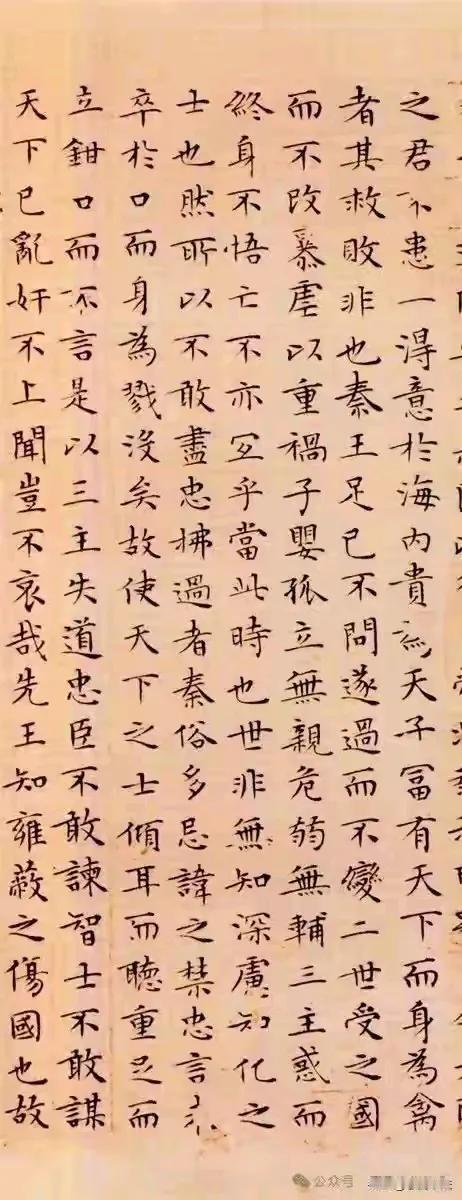 之君不患一淂意於海内貴為天子冨有天下而身為禽
者其救敗非也秦王足已不問遂過而不變二世受之國
而不改暴虐以重禍子嬰孤立無親危弱無輔三主惑而
終身不悟亡不亦冝乎當此時也世非無知深慮知化之
士也然所以不敢盡忠拂過者秦俗多忌諱之禁忠言未
卒於口而身為戮没矣故使天下之士傾耳而聽重足而
立鉗口而不言是以三主失道忠臣不敢諫智士不敢謀
天下已亂奸不上聞豈不哀哉先王知雍蔽之傷國也故
公众号